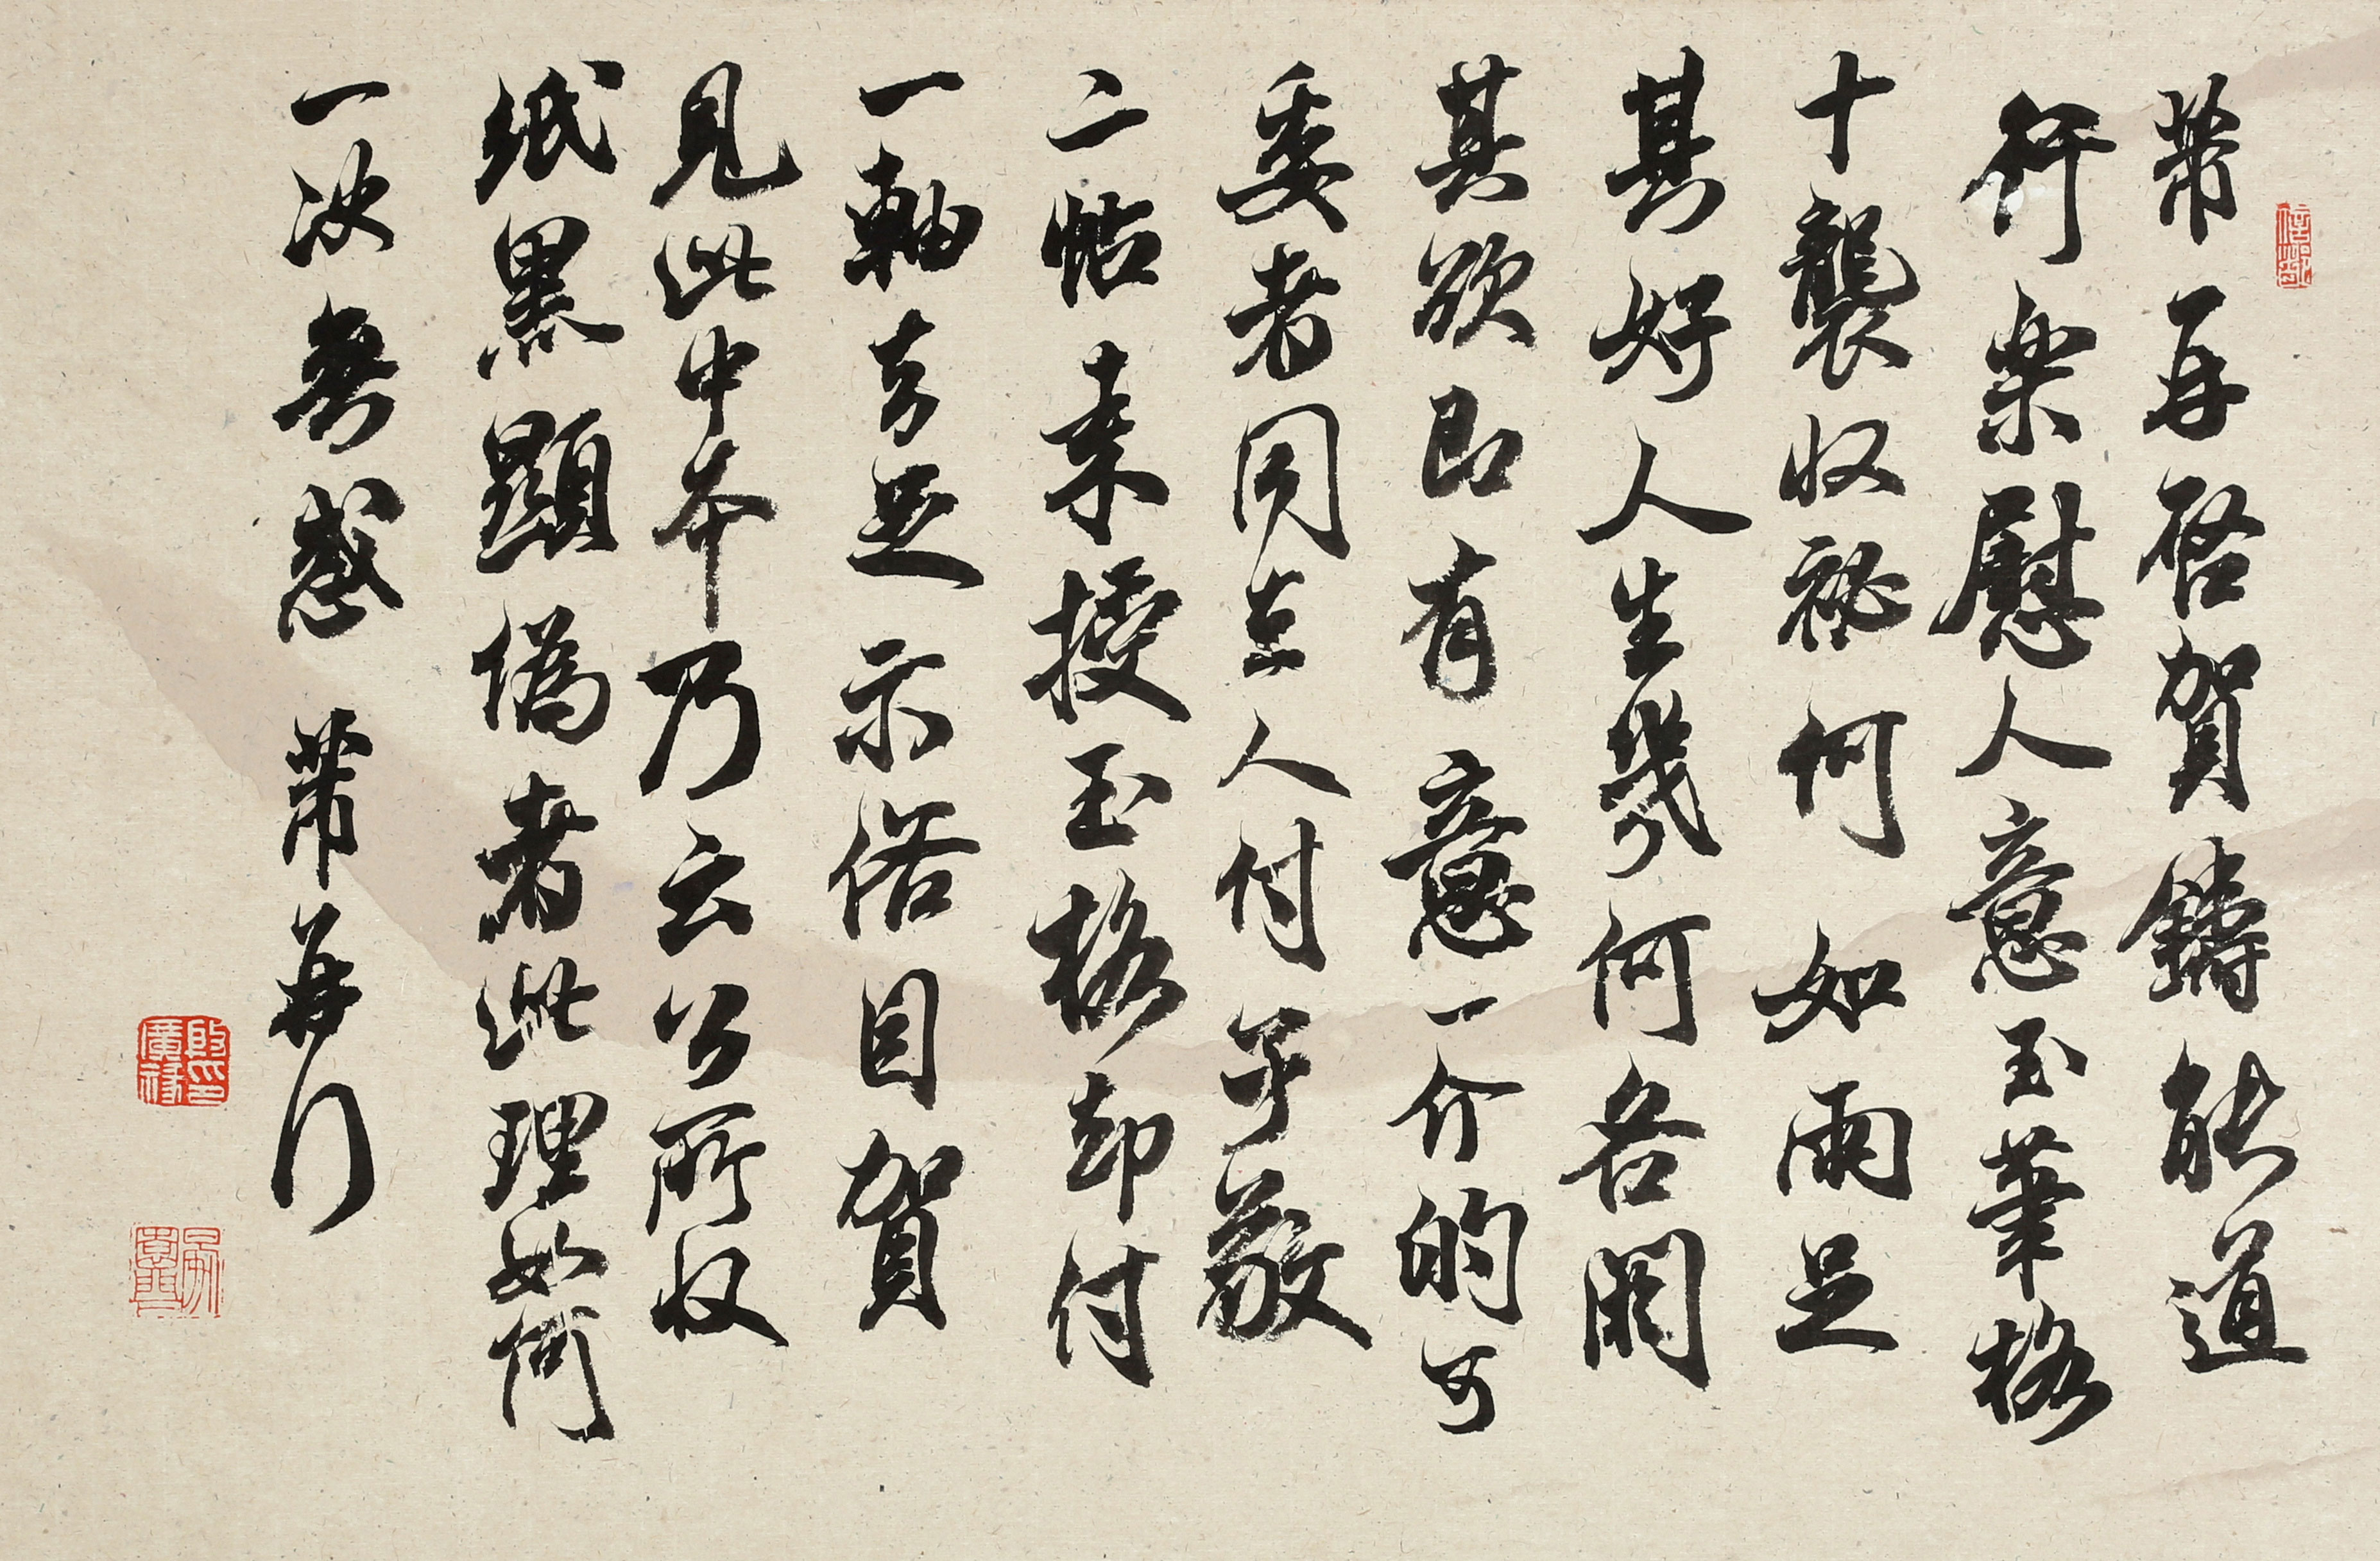 芾再啓賀鑄能道
行樂慰人意玉筆格
十襲收秘何如兩足
其好人生幾何各閱
其欲即有意一介的可
委者同去人付子敬
二帖來授玉格却付
一軸去足示俗目賀
見此中本乃云公所收
紙黑顯偽者此理如何
一決無惑 芾再拜
殷印廣祿